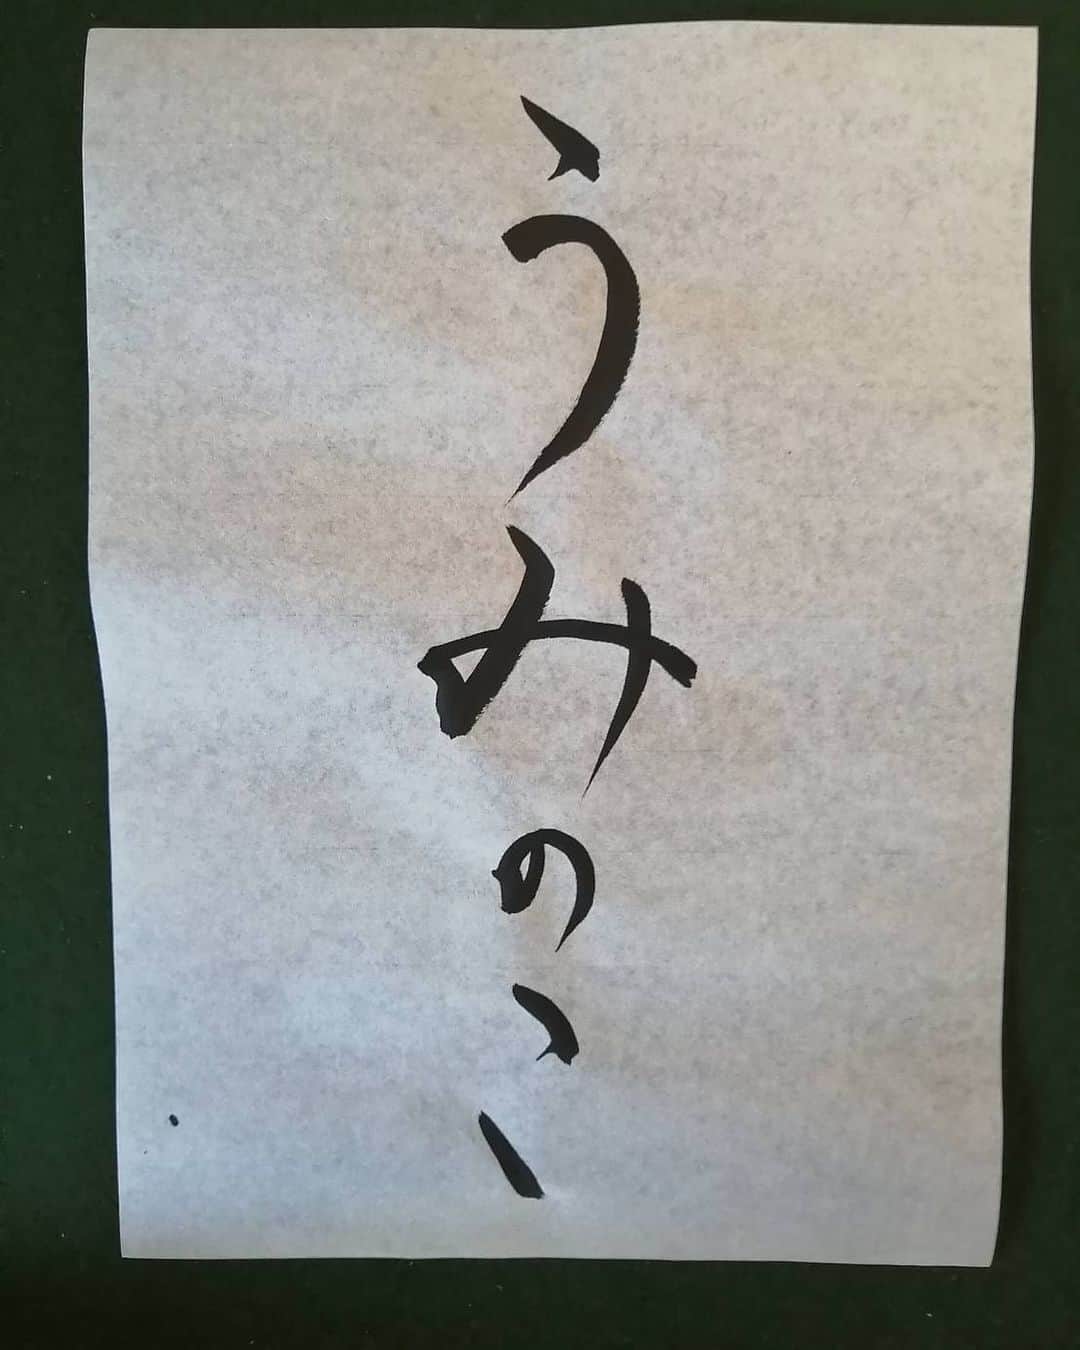 うみのこ